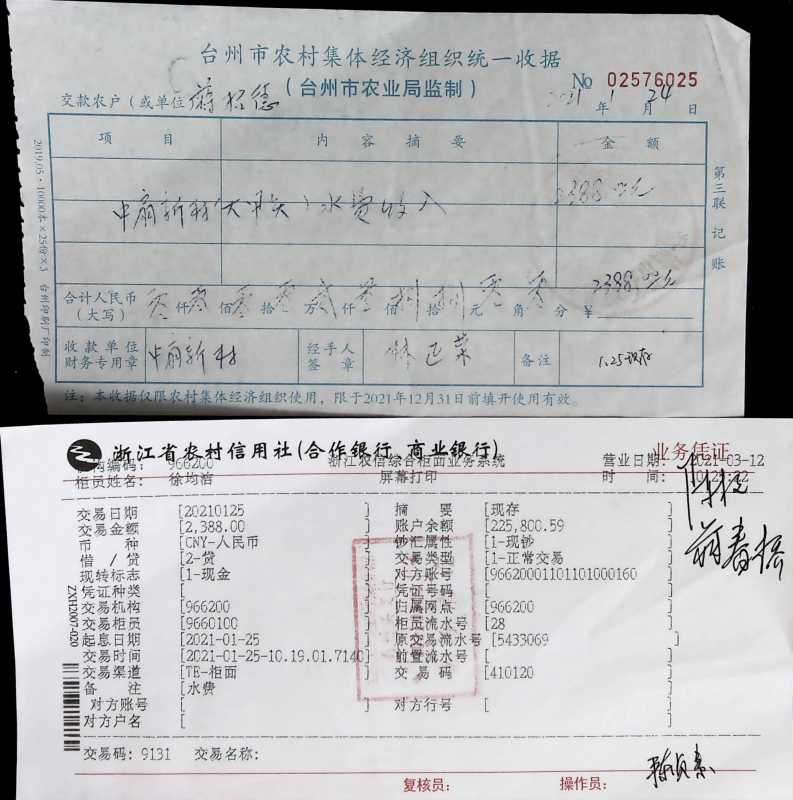 台州市农村集体经济组织统一收据
(台州市农业局监制)
No 02576025
交款农户(或单位
2021年1月24日
项目 内容摘要 金额
中扇新村(大甲头)水费收入 2388.00元
合计人民币(大写) 零仟零佰零拾零万贰仟叁佰捌拾捌元零角零分 ¥2388.00元
收款单位财务专用章 中扇新村 经手人签章 备注 1.25现存
注:本收据仅限农村集体经济组织使用,限于2021年12月31日前填开使用有效。
第三联 记账
2019.05·10000本×25份×3 台州印刷厂印制
浙江省农村信用社(合作银行、商业银行) 业务凭证
机构编码: 966200 浙江农信综合柜面业务系统 营业日期: 2021-03-12
柜员姓名: 徐均洁 屏幕打印 时间:
交易日期 [20210125 ] 摘要 [现存 ]
交易金额 [2,388.00 ] 账户余额 [225,800.59 ]
币种 [CNY-人民币 ] 钞汇属性 [1-现钞 ]
借/贷 [2-贷 ] 交易类型 [1-正常交易 ]
现转标志 [1-现金 ] 对方账号 [966200011011010 00160 ]
凭证种类 [ ] 凭证号码 [ ]
交易机构 [966200 ] 归属网点 [966200 ]
交易柜员 [9660100 ] 柜员流水号 [28 ]
起息日期 [2021-01-25 ] 原交易流水号 [5433069 ]
交易时间 [2021-01-25-10.19.01.7140] 前置流水号 [ ]
交易渠道 [TE-柜面 ] 交易码 [410120 ]
备注 [水费 ]
对方账号 [ ] 对方行号 [ ]
对方户名 [ ]
交易码: 9131 交易名称:
复核员: 操作员:
ZXH2007-020